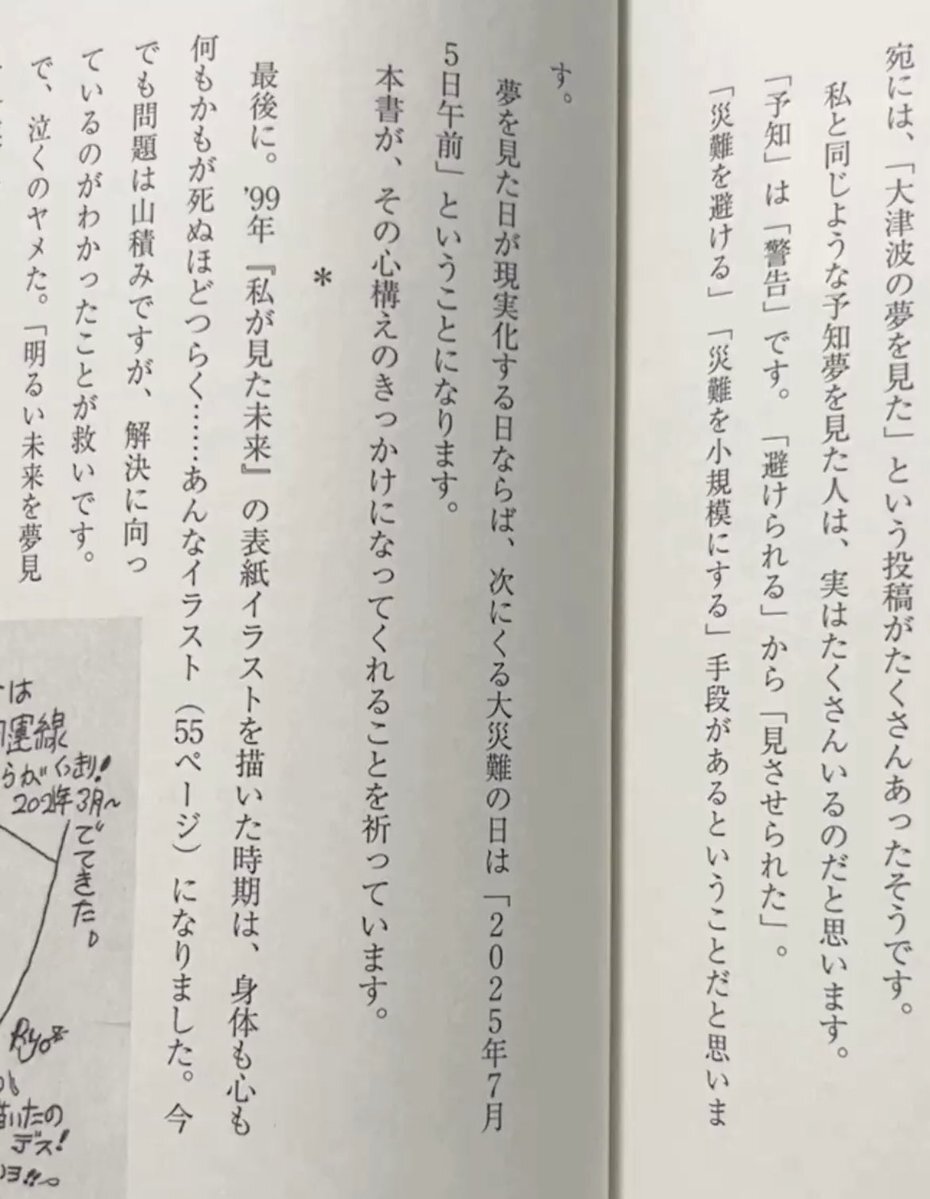 宛には、「大津波の夢を見た」という投稿がたくさんあったそうです。
私と同じような予知夢を見た人は、実はたくさんいるのだと思います。
「予知」は「警告」です。「避けられる」から「見させられた」。
「災難を避ける」「災難を小規模にする」手段があるということだと思いま
す。
夢を見た日が現実化する日ならば、次にくる大災難の日は「2025年7月
5日午前」ということになります。
本書が、その心構えのきっかけになってくれることを祈っています。
*
最後に。'99年『私が見た未来』の表紙イラストを描いた時期は、身体も心も
何もかもが死ぬほどつらく……あんなイラスト(55ページ)になりました。今
でも問題は山積みですが、解決に向っ
ているのがわかったことが救いです。
で、泣くのヤメた。「明るい未来を夢見
は
運線
らがくっきり!
2021年3月~
でてきた。
Ryo
描いたの
デス!
ヨ!!